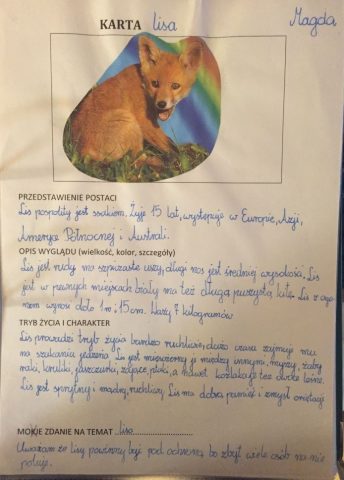 KARTA lisa
Magda
PRZEDSTAWIENIE POSTACI
Lis pospolity jest ssakiem. Żyje 15 lat, występuje w Europie, Azji,
Ameryce Północnej i Australi.
OPIS WYGLĄDU (wielkość, kolor, szczegóły)
Lis jest rudy ma szpiczaste uszy, długi nos jest średniej wysokości. Lis
jest w pewnych miejscach biały ma też długą puszystą kitę. Lis z ogo
nem wynosi około 1 m i 15 cm. Waży 7 kilogramów
TRYB ŻYCIA I CHARAKTER
Lis prowadzi tryb życia bardzo ruchliwy, dużo czasu zajmuje mu
na szukaniu jedzenia. Lis jest mięsożerny je między innymi, myszy, żaby
raki, króliki, jaszczurki, zające, ptaki, a nawet koźlaki, też owoce leśne.
Lis jest sprytny i mądry, ruchliwy. Lis ma dobrą pamięć i zmysł orientacji
MOJE ZDANIE NA TEMAT lisa
Uważam że lisy powinny być pod ochroną bo zbyt wiele osób na nie
poluje.